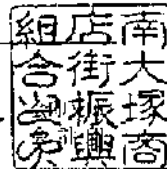 南大塚商
店街振興
組合之印